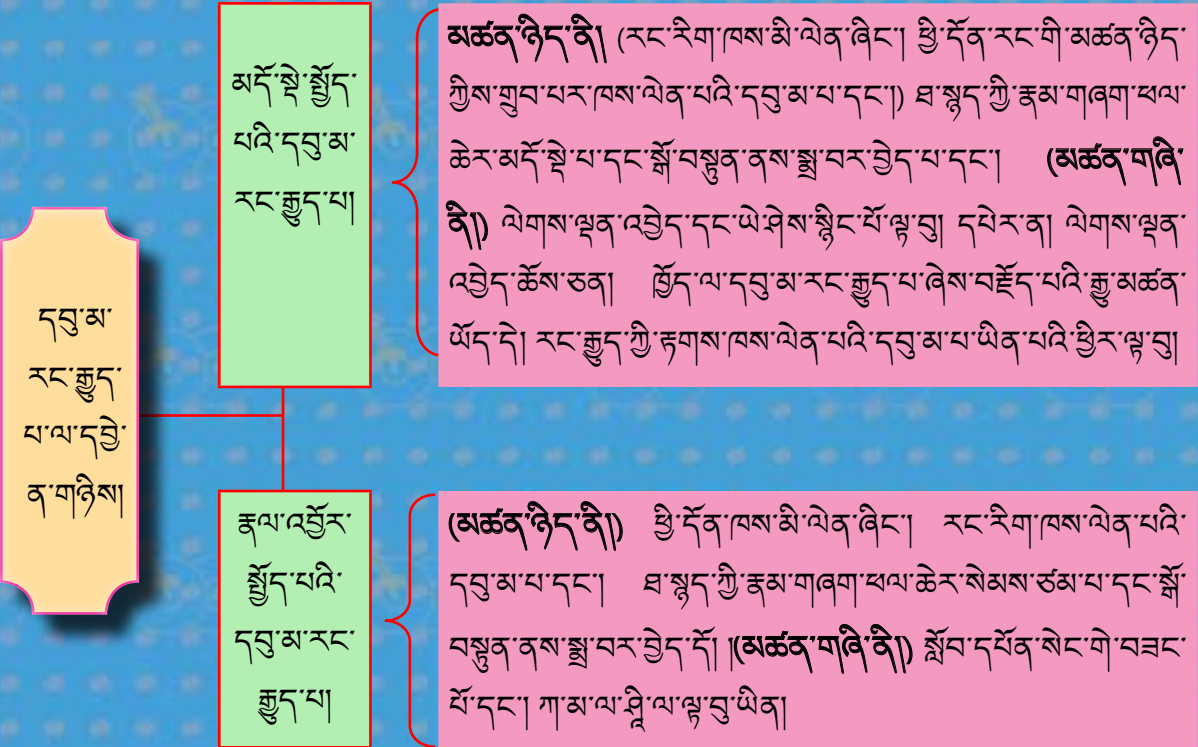 དབུ་མ་
རང་རྒྱུད་
པ་ལ་དབྱེ་
ན་གཉིས།
མདོ་སྡེ་སྤྱོད་
པའི་དབུ་མ་
རང་རྒྱུད་པ།
མཚན་ཉིད་ནི། (རང་རིག་ཁས་མི་ལེན་ཞིང་། ཕྱི་དོན་རང་གི་མཚན་ཉིད་
ཀྱིས་གྲུབ་པར་ཁས་ལེན་པའི་དབུ་མ་པ་དང་།) ཐ་སྙད་ཀྱི་རྣམ་གཞག་ཕལ་
ཆེར་མདོ་སྡེ་པ་དང་སྒོ་བསྟུན་ནས་སྨྲ་བར་བྱེད་པ་དང་། (མཚན་གཞི་
ནི།) ལེགས་ལྡན་འབྱེད་དང་ཡེ་ཤེས་སྙིང་པོ་ལྟ་བུ། དཔེར་ན། ལེགས་ལྡན་
འབྱེད་ཆོས་ཅན། ཁྱོད་ལ་དབུ་མ་རང་རྒྱུད་པ་ཞེས་བརྗོད་པའི་རྒྱུ་མཚན་
ཡོད་དེ། རང་རྒྱུད་ཀྱི་རྟགས་ཁས་ལེན་པའི་དབུ་མ་པ་ཡིན་པའི་ཕྱིར་ལྟ་བུ།
རྣལ་འབྱོར་
སྤྱོད་པའི་
དབུ་མ་རང་
རྒྱུད་པ།
(མཚན་ཉིད་ནི།) ཕྱི་དོན་ཁས་མི་ལེན་ཞིང་། རང་རིག་ཁས་ལེན་པའི་
དབུ་མ་པ་དང་། ཐ་སྙད་ཀྱི་རྣམ་གཞག་ཕལ་ཆེར་སེམས་ཙམ་པ་དང་སྒོ་
བསྟུན་ནས་སྨྲ་བར་བྱེད་དོ། །(མཚན་གཞི་ནི།) སློབ་དཔོན་སེང་གེ་བཟང་
པོ་དང་། ཀ་མ་ལ་ཤཱི་ལ་ལྟ་བུ་ཡིན།